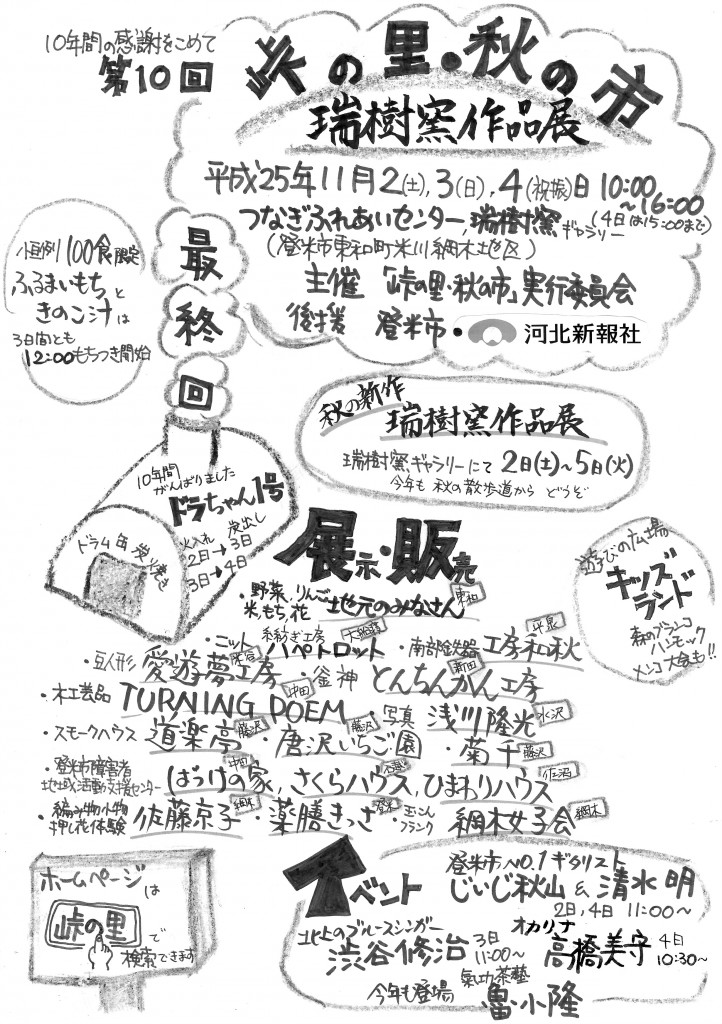 10年間の感謝をこめて
第10回 峠の里・秋の市
瑞樹窯作品展
平成25年11月2(土),3(日),4(祝振)日 10:00～16:00
(4日は15:00まで)
つなぎふれあいセンター,瑞樹窯ギャラリー
(登米市東和町米川綱木地区)
主催 「峠の里・秋の市」実行委員会
後援 登米市・河北新報社
最終回
小恒例 100食限定
ふるまいもちと
きのこ汁は
3日間とも
12:00もちつき開始
秋の新作
瑞樹窯作品展
瑞樹窯ギャラリーにて 2日(土)～5日(火)
今年も 秋の散歩道から どうぞ
10年間
がんばりました
ドラちゃん1号
ドラム缶炭焼き
火入れ 炭出し
2日→3日
3日→4日
展示・販売
・野菜、りんご 米,もち,花 地元のみなさん 東和
・ニット 糸紡ぎ工房 パペトロット ・南部鉄器 工房和秋 平泉
・豆人形 愛遊夢工房 ・釜神 とんちんかん工房 新田
・木工芸品 TURNING POEM 中田 ・写真 浅川隆光 水沢
・スモークハウス 道楽亭 藤沢 ・唐沢いちご園 藤沢 ・菊千 藤沢
・登米市障害者 地域活動支援センター ばっけの家,さくらハウス,ひまわりハウス 佐沼
・編み物小物 押し花体験 佐藤京子 綱木 ・薬膳きっさ 登米 ・玉こん フランク 綱木女子会 綱木
遊びの広場
キッズランド
森のブランコ
ハンモック
メンコ大会も!!
ホームページは
峠の里で
検索できます
イベント
登米市No.1ギタリスト
じぃじ秋山&清水明
2日,4日 11:00～
北上のブルースシンガー
渋谷修治 3日 11:00～
オカリナ
高橋美守 4日 10:30～
今年も登場 氣功茶藝
魯小隆